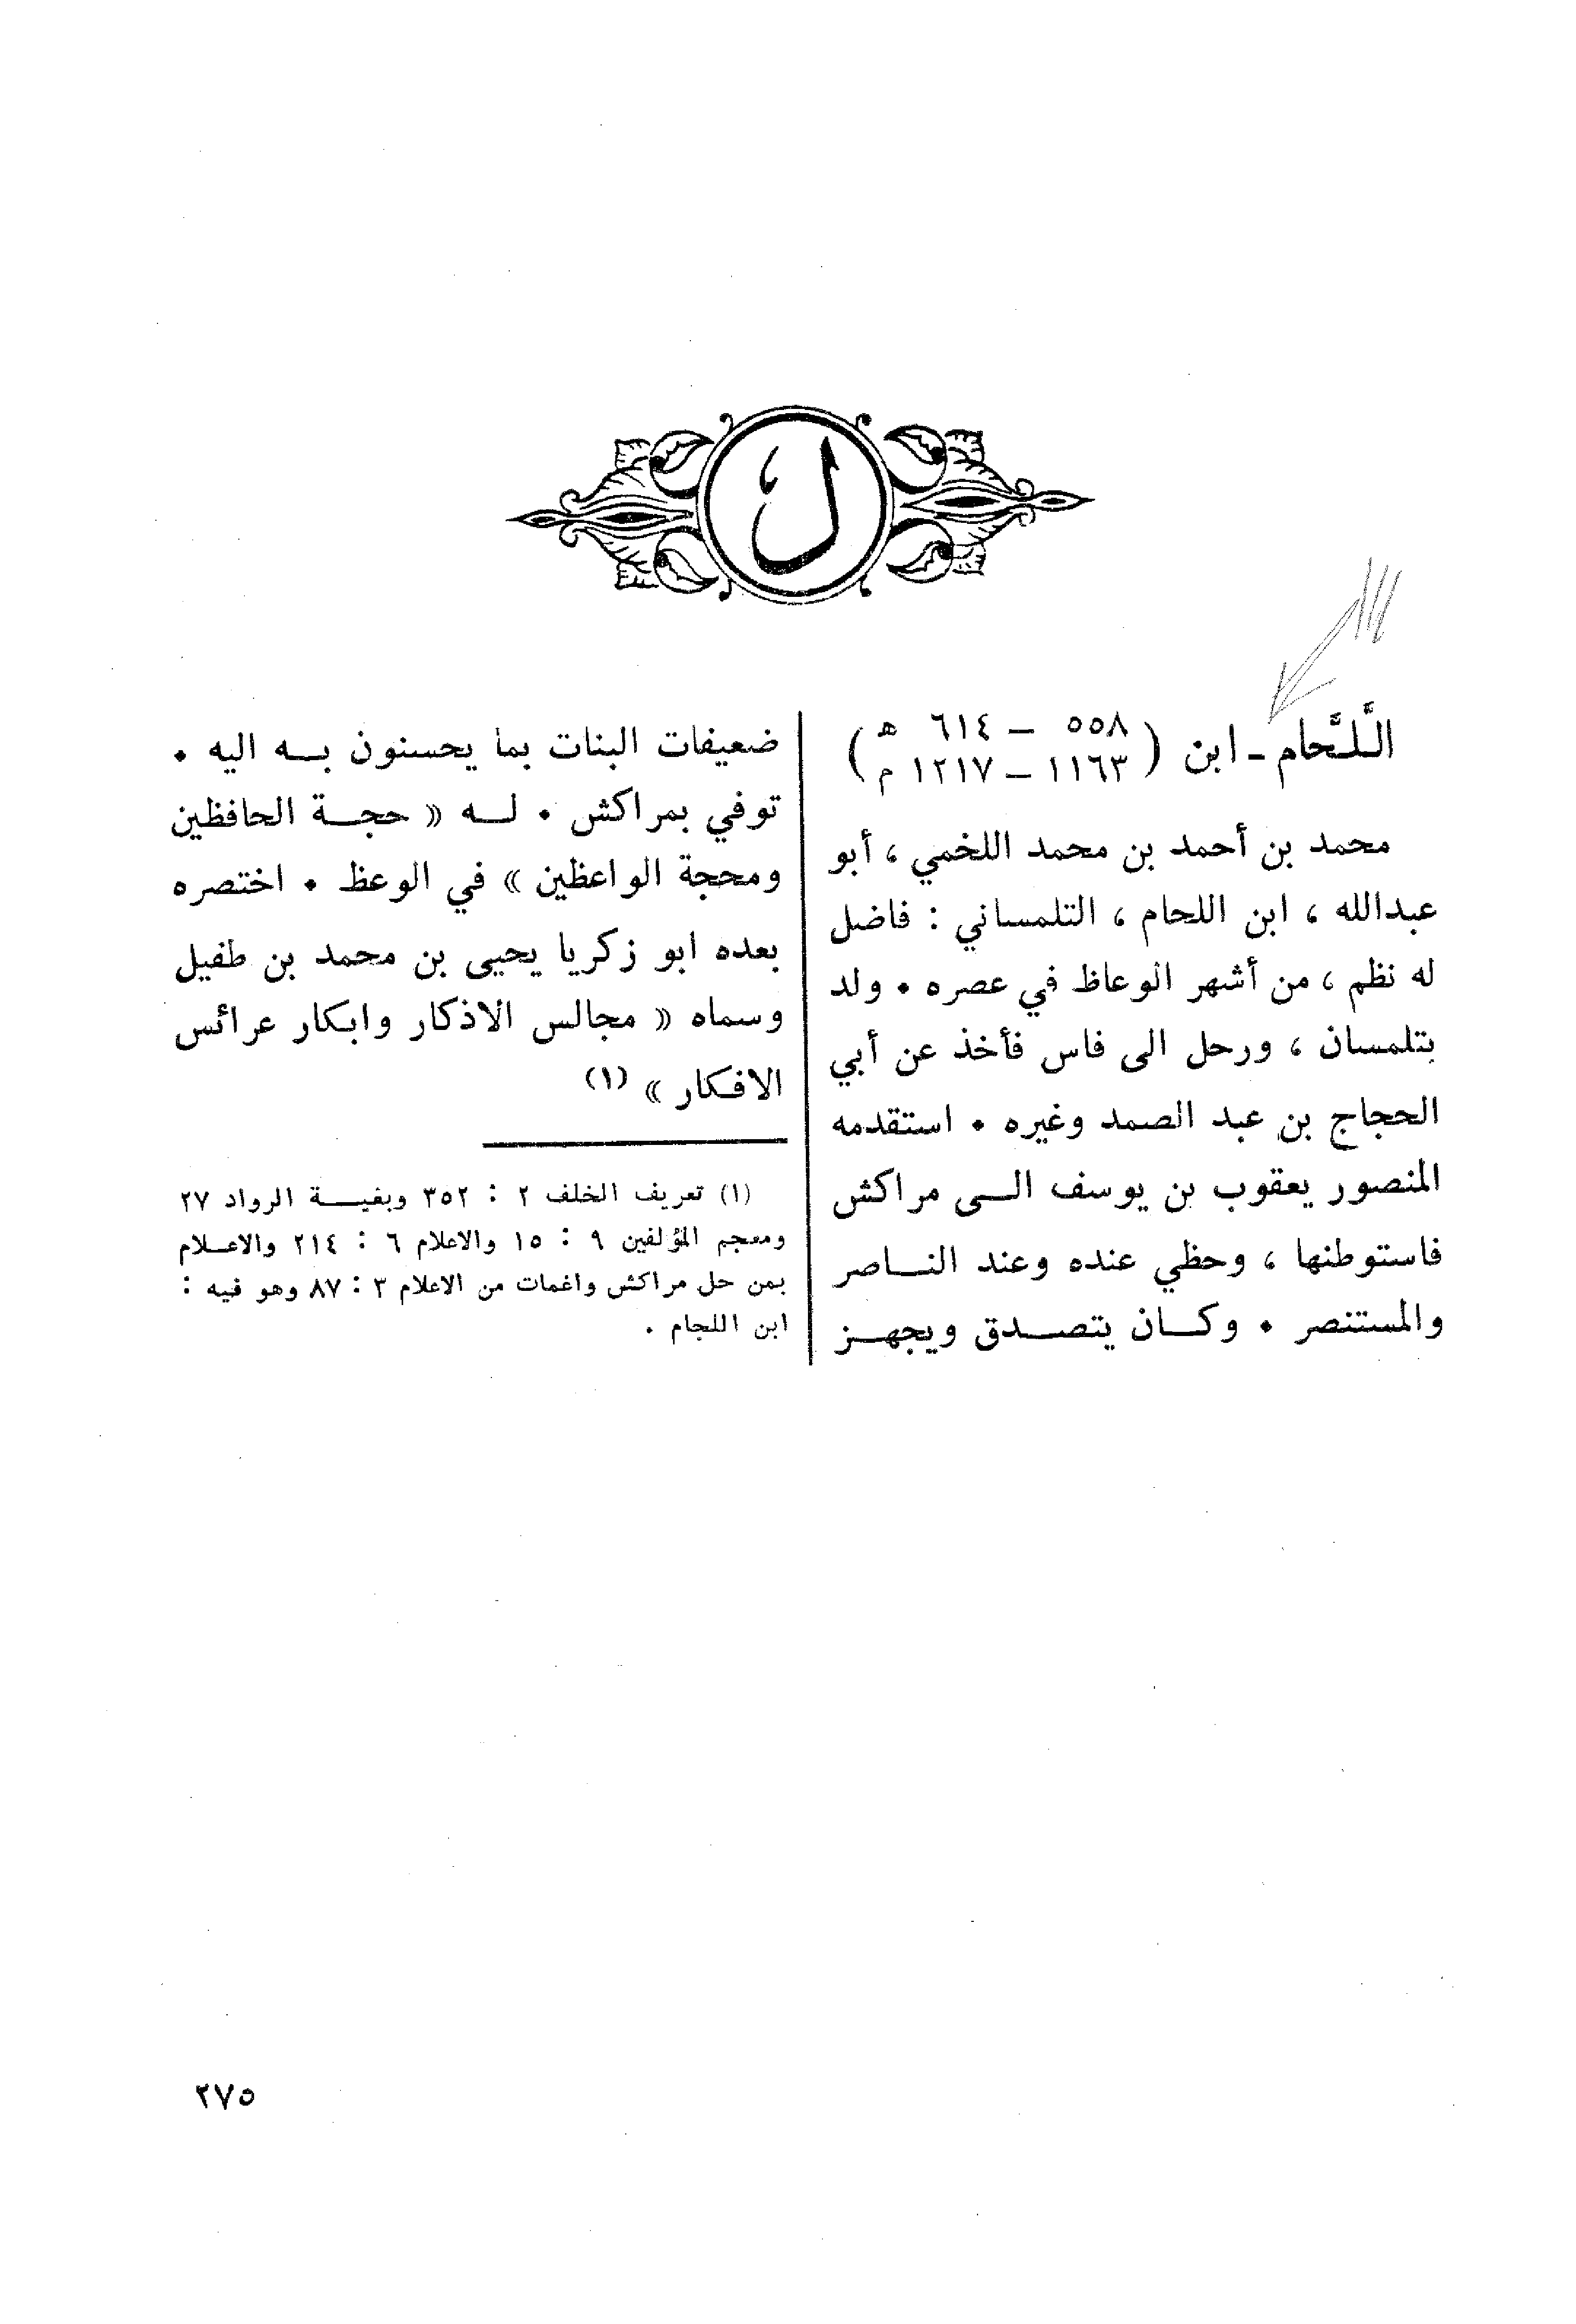 ل
اللَّحَّام ـ ابن ( ٥٥٨ – ٦١٤ هـ
١١٦٣ – ١٢١٧ م )
محمد بن أحمد بن محمد اللخمي ، أبو
عبدالله ، ابن اللحام ، التلمساني : فاضل
له نظم ، من أشهر الوعاظ في عصره . ولد
بتلمسان ، ورحل الى فاس فأخذ عن أبي
الحجاج بن عبد الصمد وغيره . استقدمه
المنصور يعقوب بن يوسف الى مراكش
فاستوطنها ، وحظي عنده وعند الناصر
والمستنصر . وكان يتصدق ويجهز
ضعيفات البنات بما يحسنون به اليه .
توفي بمراكش . له « حجة الحافظين
ومحجة الواعظين » في الوعظ . اختصره
بعده ابو زكريا يحيى بن محمد بن طفيل
وسماه « مجالس الاذكار وابكار عرائس
الافكار » (١)
(١) تعريف الخلف ٢ : ٣٥٢ وبغية الرواد ٢٧
ومعجم المؤلفين ٩ : ١٥ والاعلام ٦ : ٢١٤ والاعلام
بمن حل مراكش واغمات من الاعلام ٣ : ٨٧ وهو فيه :
ابن اللجام .
٢٧٥